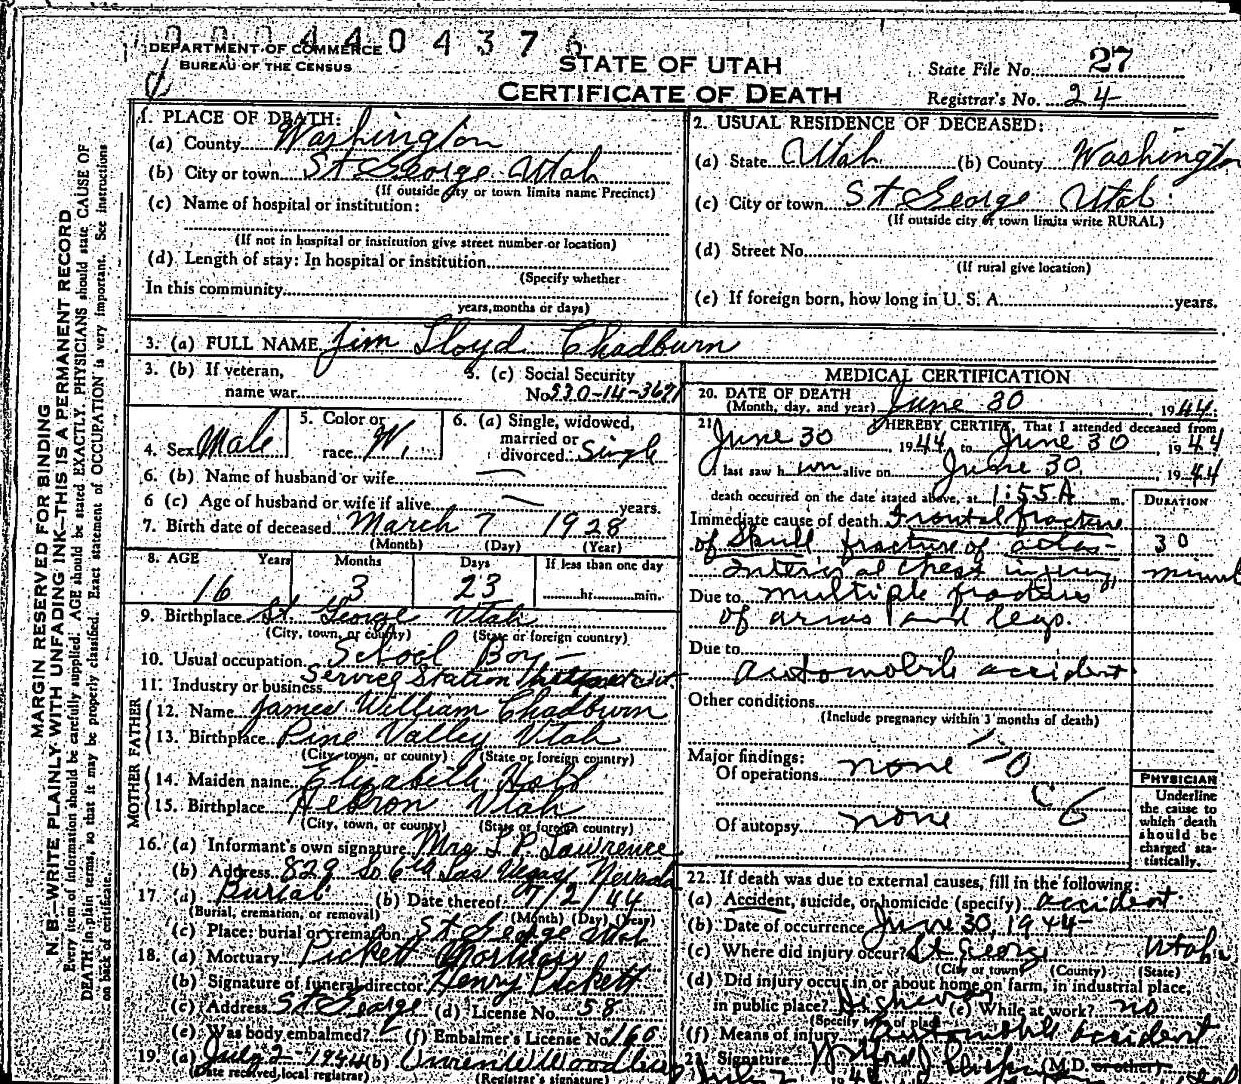 000440437
DEPARTMENT OF COMMERCE
BUREAU OF THE CENSUS
STATE OF UTAH
CERTIFICATE OF DEATH
State File No. 27
Registrar's No. 24
MARGIN RESERVED FOR BINDING
N. B.—WRITE PLAINLY WITH UNFADING INK—THIS IS A PERMANENT RECORD
Every item of information should be carefully supplied. AGE should be stated EXACTLY. PHYSICIANS should state CAUSE OF
DEATH in plain terms, so that it may be properly classified. Exact statement of OCCUPATION is very important. See instructions
on back of certificate.
1. PLACE OF DEATH:
(a) County Washington
(b) City or town St George Utah
(If outside city or town limits name Precinct)
(c) Name of hospital or institution:
(If not in hospital or institution give street number or location)
(d) Length of stay: In hospital or institution
(Specify whether
In this community
years, months or days)
2. USUAL RESIDENCE OF DECEASED:
(a) State Utah (b) County Washington
(c) City or town St George Utah
(If outside city or town limits write RURAL)
(d) Street No.
(If rural give location)
(e) If foreign born, how long in U. S. A. years.
3. (a) FULL NAME Jim Lloyd Chadburn
3. (b) If veteran,
name war
3. (c) Social Security
No. 530-14-3691
4. Sex Male
5. Color or
race W.
6. (a) Single, widowed,
married or
divorced Single
6. (b) Name of husband or wife —
6 (c) Age of husband or wife if alive — years.
7. Birth date of deceased March 7 1928
(Month) (Day) (Year)
8. AGE Years Months Days If less than one day
16 3 23 hr. min.
9. Birthplace St. George Utah
(City, town, or county) (State or foreign country)
10. Usual occupation School Boy —
11. Industry or business Service Station
FATHER
12. Name James William Chadburn
13. Birthplace Pine Valley Utah
(City, town, or county) (State or foreign country)
MOTHER
14. Maiden name Elizabeth Holt
15. Birthplace Hebron Utah
(City, town, or county) (State or foreign country)
16. (a) Informant's own signature Mrs L. P. Lawrence
(b) Address 829 So 6th Las Vegas, Nevada
17. (a) Burial (b) Date thereof 7/2/44
(Burial, cremation, or removal) (Month) (Day) (Year)
(c) Place: burial or cremation St George Utah
18. (a) Mortuary Pickett Mortuary
(b) Signature of funeral director Henry Pickett
(c) Address St George (d) License No. 58
(e) Was body embalmed? (f) Embalmer's License No. 160
19. (a) July 2 - 1944 (b)
(Date received local registrar) (Registrar's signature)
MEDICAL CERTIFICATION
20. DATE OF DEATH
(Month, day, and year) June 30, 1944
21. I HEREBY CERTIFY, That I attended deceased from
June 30, 1944 to June 30, 1944
I last saw him alive on June 30, 1944
death occurred on the date stated above, at 1:55 A m.
DURATION
Immediate cause of death Frontal fracture
of Skull fracture of
chest injury, 30
Due to multiple fractures
of arms and legs.
Due to
automobile accident
Other conditions
(Include pregnancy within 3 months of death)
Major findings:
Of operations none
Of autopsy none
PHYSICIAN
Underline
the cause to
which death
should be
charged sta-
tistically.
22. If death was due to external causes, fill in the following:
(a) Accident, suicide, or homicide (specify) accident
(b) Date of occurrence June 30, 1944
(c) Where did injury occur? St George Utah
(City or town) (County) (State)
(d) Did injury occur in or about home on farm, in industrial place,
in public place? Highway (e) While at work? no
(Specify type of place)
(f) Means of injury Automobile accident
23. Signature (M.D. or other)
July 2 1944